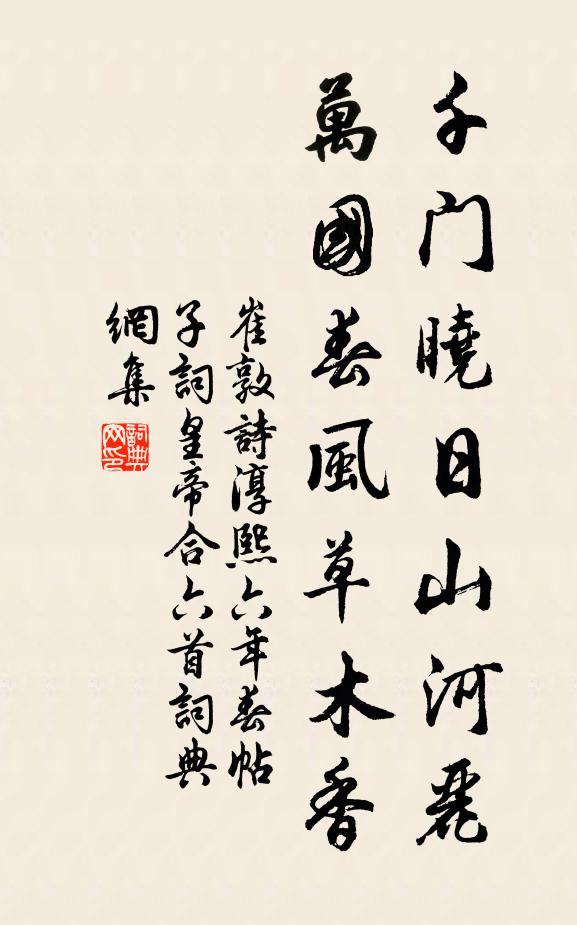 千门曉日山河麗
萬國春風草木香
崔敦詩淳熙六年春帖
子詞皇帝合六首詞典
網集
詞典
网印